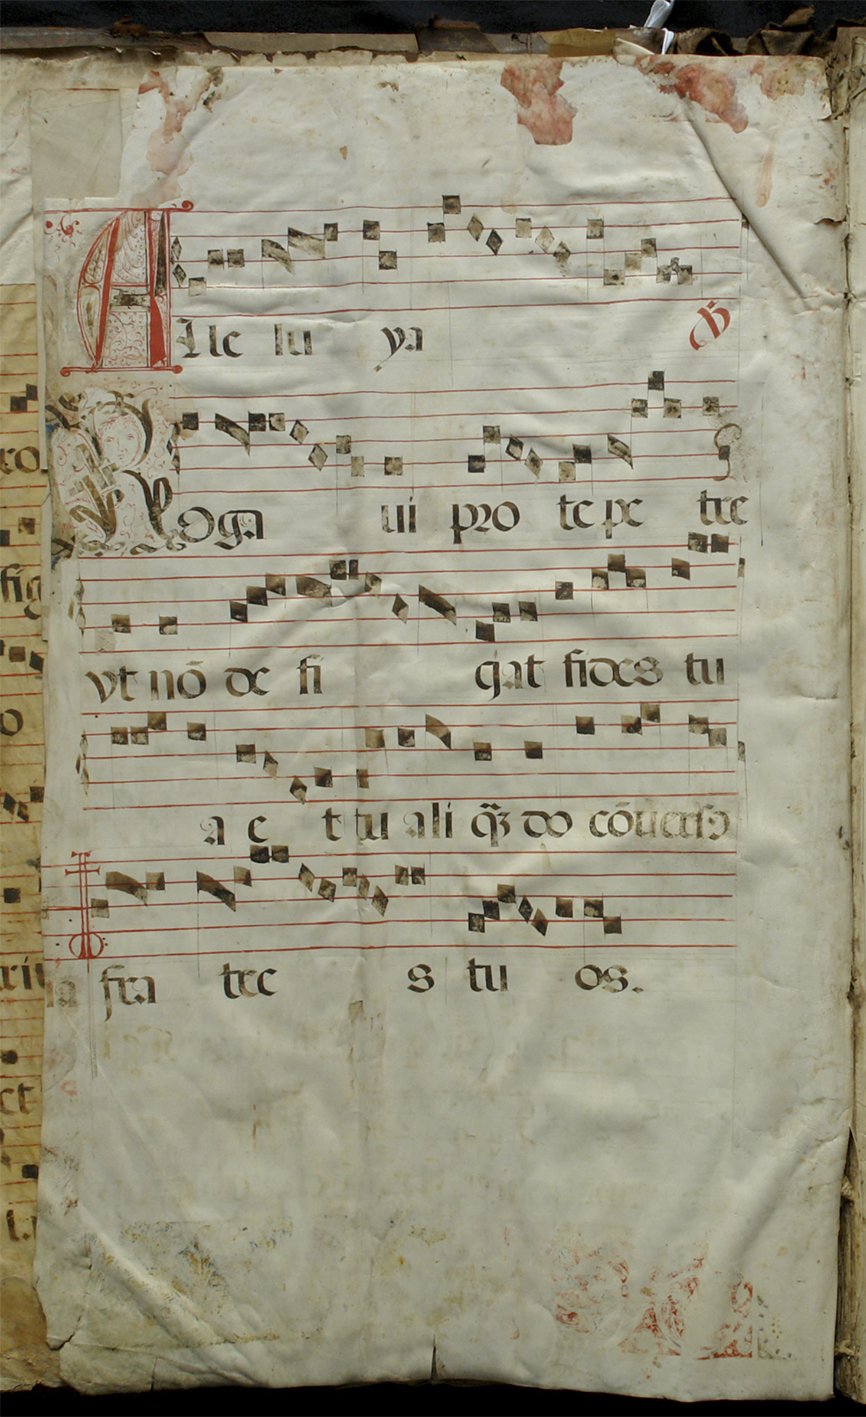 Alle lu ya ℣
Roga ui pro te pe tre
vt nō de fi çiat fides tu
a e t tu ali q̃ȝ do cōuerso
fra tre s tu os.